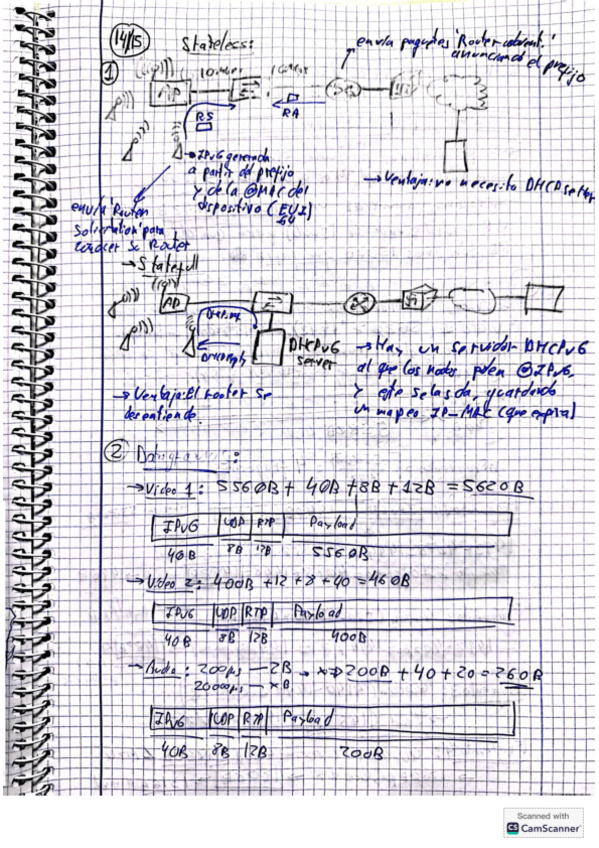 14/15
Stateless:
envía paquetes 'Router advert.'
anunciando el prefijo
1
AP
RS
RA
→ IPv6 generada
a partir del prefijo
y de la @MAC del
dispositivo (EUI
64
→ Ventaja: no necesito DHCP server
envía 'Router
Solicitation' para
conocer su Router
→ Statefull
AP
DHCP req
DHCP reply
DHCPv6
server
→ Hay un servidor DHCPv6
al que los nodos piden @IPv6,
y este se las da, guardando
un mapeo IP-MAC (que expira)
→ Ventaja: El router se
desentiende.
2 Datagramas:
→ Video 1: 5560B + 40B + 8B + 12B = 5620B
IPv6 UDP RTP Payload
40B 8B 12B 5560B
→ Video 2: 400B + 12 + 8 + 40 = 460B
IPv6 UDP RTP Payload
40B 8B 12B 400B
→ Audio: 200μs — 2B → x = 200B + 40 + 20 = 260B
20000μs — xB
IPv6 UDP RTP Payload
40B 8B 12B 200B
Scanned with
CS CamScanner